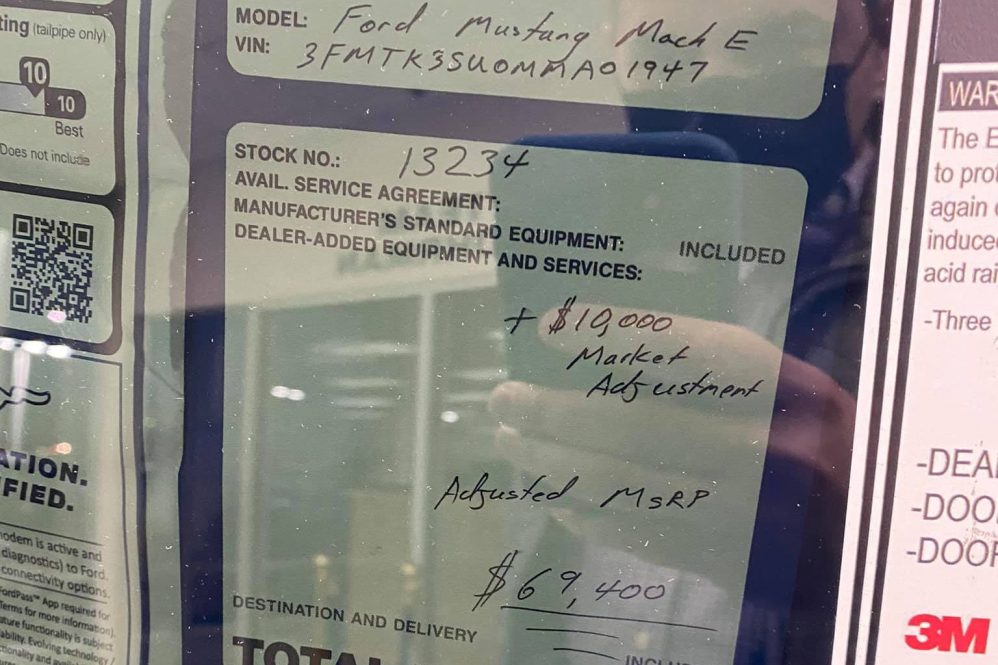 ting (tailpipe only)
10
10
Best
Does not include
ATION.
FIED.
modem is active and
diagnostics) to Ford.
connectivity options.
FordPass™ App required for
Terms for more information).
ture functionality is subject
ability. Evolving technology /
MODEL: Ford Mustang Mach E
VIN: 3FMTK3SU0MMA01947
STOCK NO.: 13234
AVAIL. SERVICE AGREEMENT:
MANUFACTURER'S STANDARD EQUIPMENT: INCLUDED
DEALER-ADDED EQUIPMENT AND SERVICES:
+ $10,000
Market
Adjustment
Adjusted MSRP
$69,400
DESTINATION AND DELIVERY
INCLU
TOTAL
WAR
The E
to prot
again
induced
acid rai
-Three
-DEAL
-DOO
-DOOR
3M